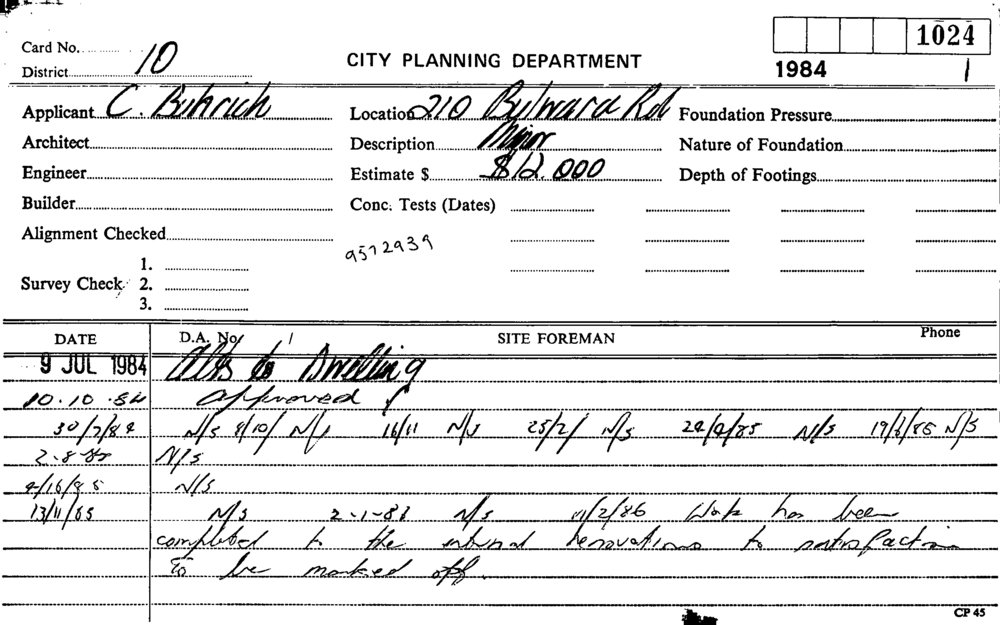 1024
Card No. 10
CITY PLANNING DEPARTMENT
District
1984 1
Applicant C. Buhrich Location 210 Bulwara Rd Foundation Pressure
Architect Description Minor Nature of Foundation
Engineer Estimate $ $12.000 Depth of Footings
Builder Conc. Tests (Dates)
Alignment Checked
9572939
1.
Survey Check 2.
3.
DATE D.A. No. / SITE FOREMAN Phone
9 JUL 1984 Alts to Dwelling
10.10.84 approved
30/7/84 N/S 8/10/ N/S 16/11 N/S 25/2/ N/S 24/4/85 N/S 19/6/85 N/S
2.8.85 N/S
4/10/85 N/S
13/11/85 N/S 2-1-86 N/S 11/2/86 Work has been
completed to the internal renovations to satisfaction
To be marked off.
CP 45